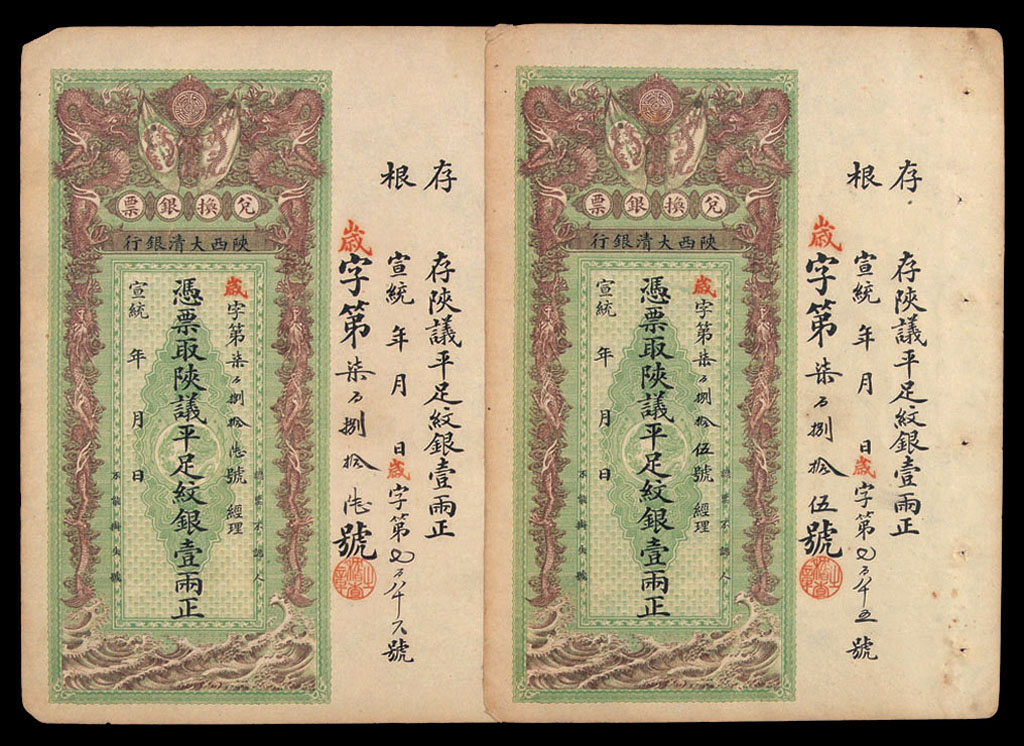 存根
存陝議平足紋銀壹兩正
宣統 年 月 日歲字第七百八十五號
歲字第柒百捌拾伍號
兌換銀票
陝西大清銀行
歲字第柒百捌拾伍號 經理
認票不認人
憑票取陝議平足紋銀壹兩正
宣統 年 月 日
存根
存陝議平足紋銀壹兩正
宣統 年 月 日歲字第七百八十六號
歲字第柒百捌拾陸號
兌換銀票
陝西大清銀行
歲字第柒百捌拾陸號 經理
認票不認人
憑票取陝議平足紋銀壹兩正
宣統 年 月 日